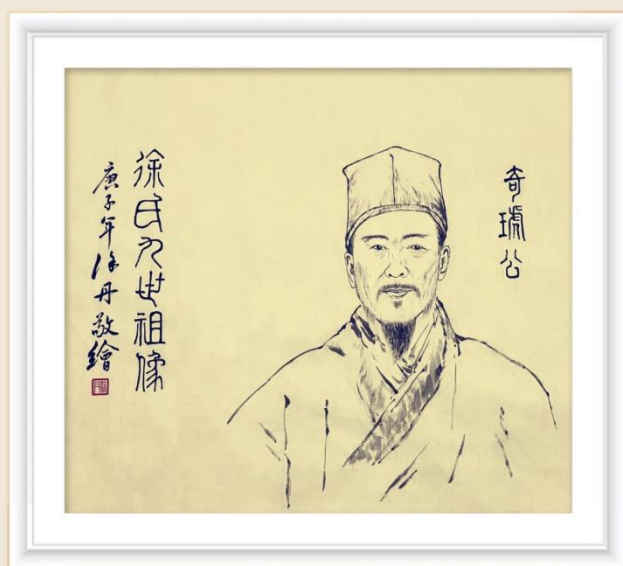 奇琥公
徐氏九世祖像
庚子年徐丹敬繪